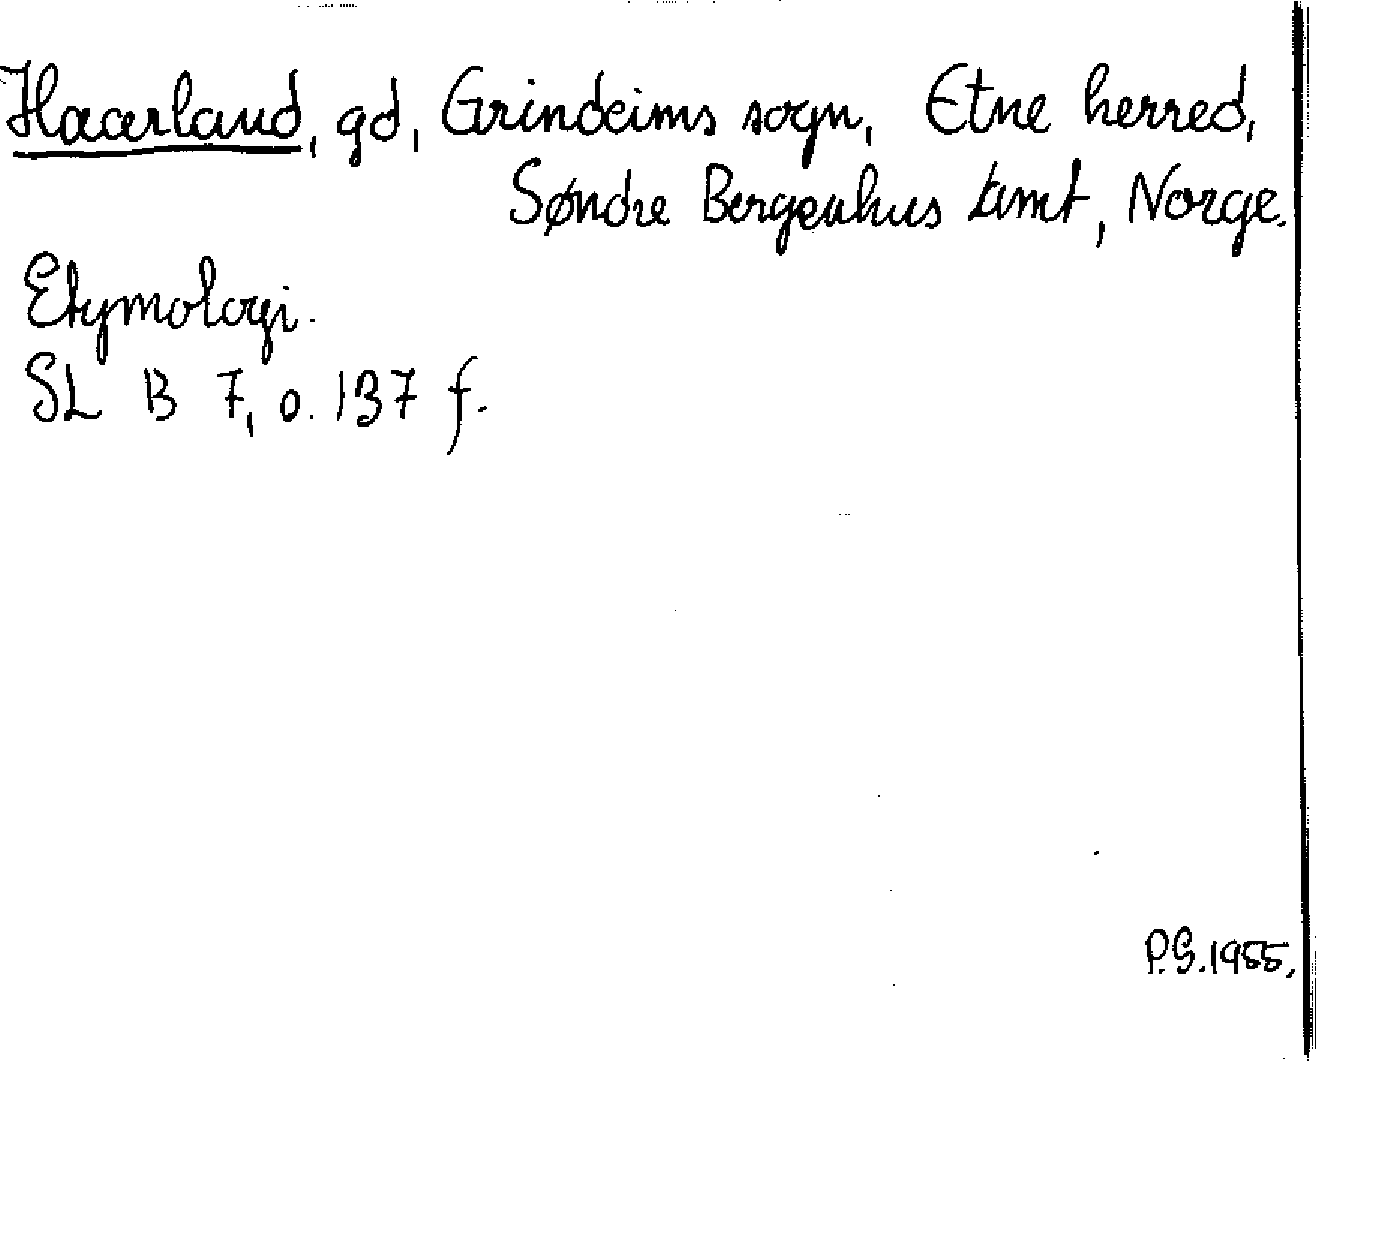 Haaerland, gd, Grindeims sogn, Etne herred,
Søndre Bergenhus amt, Norge.
Etymologi.
SL B 7, s. 137 f.
P.G. 1955.